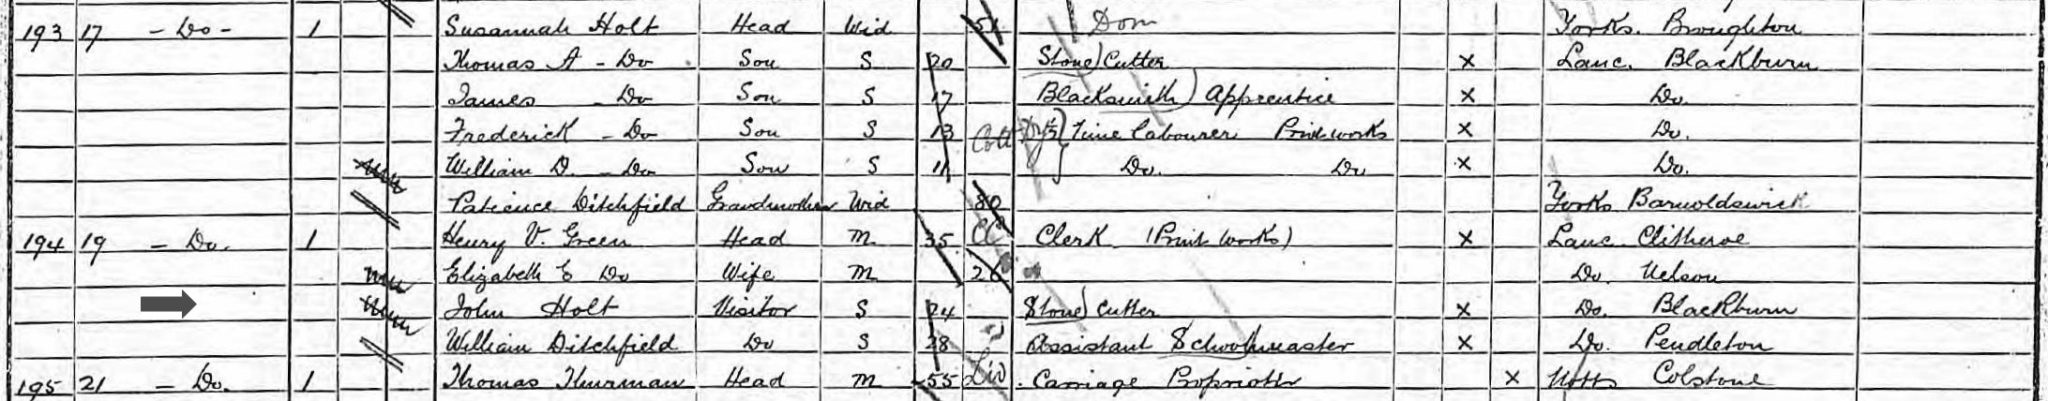 193 17 - Do - 1 Susannah Holt Head Wid 51 Dom Yorks. Broughton
Thomas A - Do Son S 20 Stone Cutter x Lanc. Blackburn
James - Do Son S 17 Blacksmith Apprentice x Do.
Frederick - Do Son S 13 Time Labourer Printworks x Do.
William D. - Do Son S 11 Do. Do x Do.
Patience Ditchfield Grandmother Wid 80 Yorks Barnoldswick
194 19 - Do. 1 Henry V. Green Head M 35 CC Clerk (Print Works) x Lanc. Clitheroe
Elizabeth E Do Wife M 26 Do. Nelson
John Holt Visitor S 24 Stone Cutter x Do. Blackburn
William Ditchfield Do S 28 Assistant Schoolmaster x Do. Pendleton
195 21 - Do. 1 Thomas Thurman Head M 55 Liv Carriage Proprietor x Notts Colstone